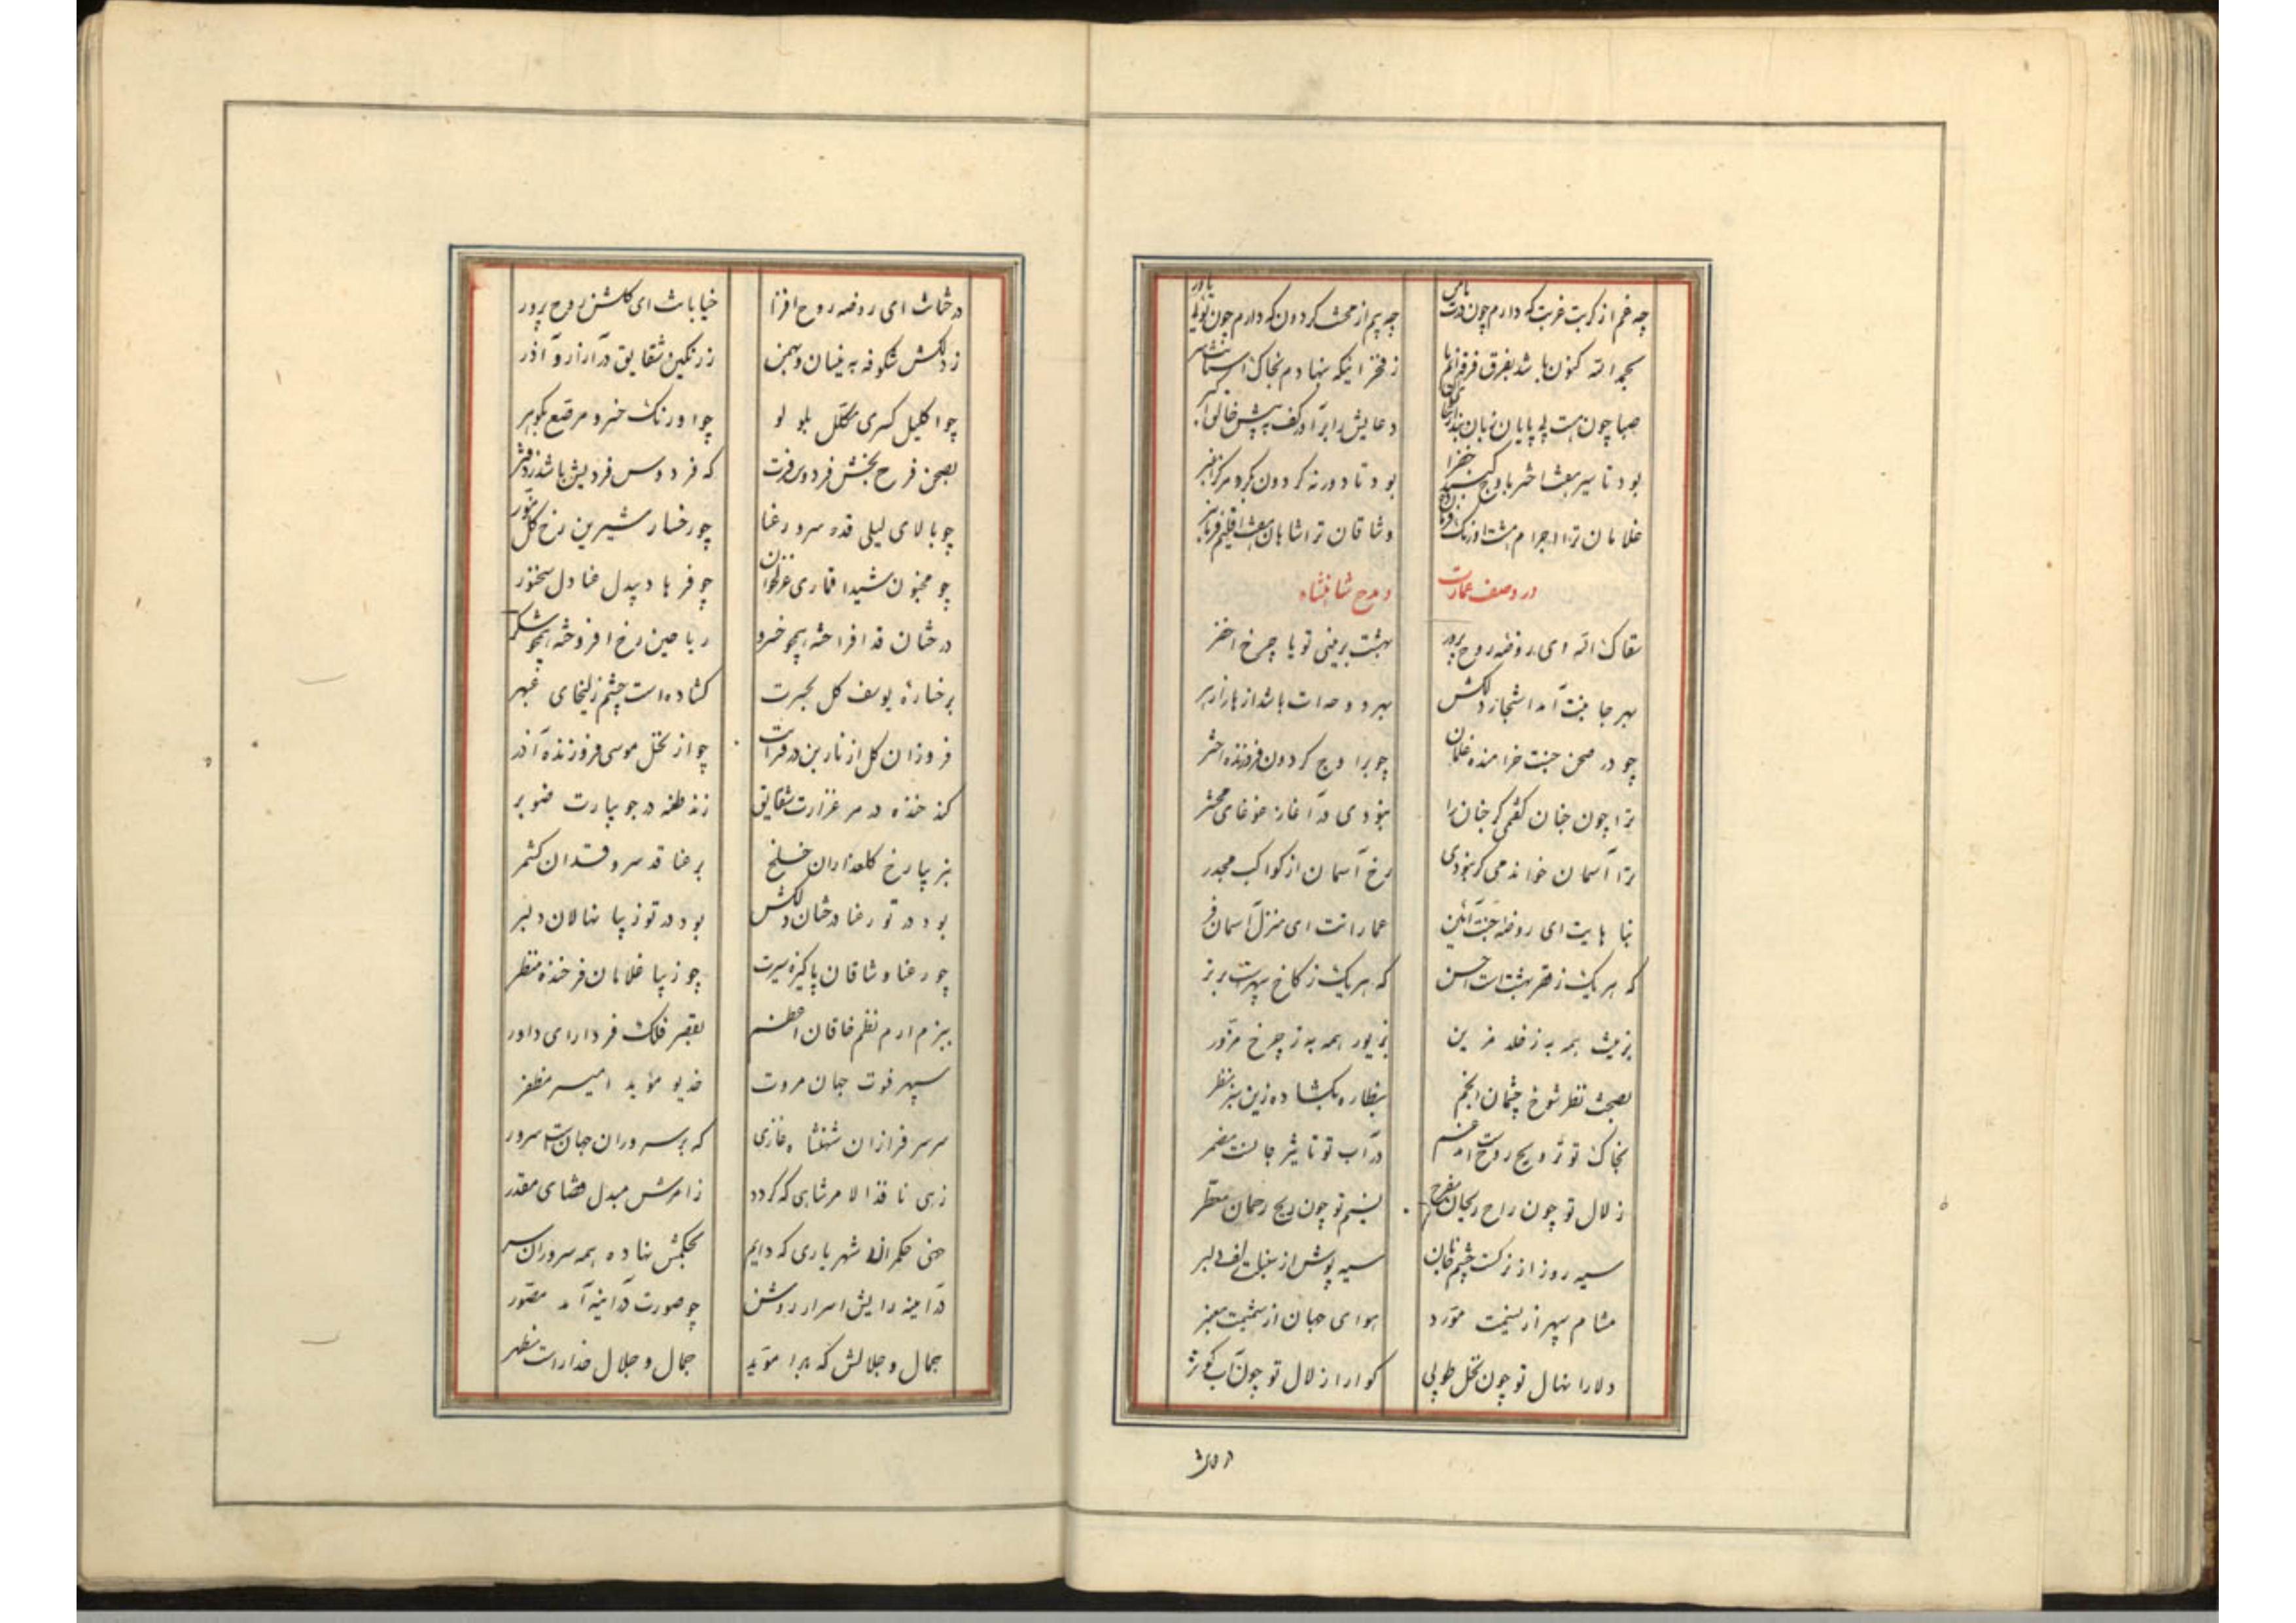 چه غم از کربت غربت که دارم چون تو یاور
چه بیم از محنت گردون که دارم چون توئی یاور
بحمد الله کنون باشد بفرق فرقدانم پا
ز فخر اینکه بنهادم بخاک آستانت سر
صبا چون هست بی پایان زبان
دعایش را برآور کف به پیش خالق اکبر
بود تا سیر هفت اختر باوج گنبد خضرا
بود تا دور نه گردون بگرد مرکز اغبر
غلامان ترا اجرام هشت اورنگ
وشاقان ترا شاهان هفت اقلیم فرمانبر
در وصف عمارت
و مدح شاهنشاه
سقاک الله ای روضه روح پرور
بهشت برینی تو یا چرخ اخضر
بهر جا بنت آمد اشجار دلکش
بهر دوحه ات باشد ازهار ازهر
چو در صحن جنت خرامنده غلمان
چو بر اوج گردون فروزنده اختر
ترا چون جنان گفتمی گر جنان را
نبودی در آغاز غوغای محشر
ترا آسمان خواندمی گر نبودی
رخ آسمان از کواکب مجدر
بناهایت ای روضه جنت آئین
عماراتت ای منزل آسمان فر
که هر یک ز قصر بهشت است احسن
که هر یک ز کاخ سپهرست برتر
بزینت همه به ز خلد مزین
بزیور همه به ز چرخ مزور
بصحنت نظر شوخ چشمان انجم
بنظاره بگشاده زین سبز منظر
بخاک تو ترویح روحست مدغم
در آب تو تاثیر جانست مضمر
زلال تو چون راح ریحان مفرح
نسیم تو چون ریح رحمان معطر
سیه روز از نرگست چشم خوبان
سیه پوش از سنبلت زلف دلبر
مشام سپهر از نسیمت مورد
هوای جهان از شمیمت معنبر
دلارا نهال تو چون نخل طوبی
گوارا زلال تو چون آب کوثر
درختانت
درختانت ای روضه روح افزا
خیابانت ای گلشن روح پرور
ز دلکش شکوفه به نیسان و بهمن
ز رنگین شقایق در آزار و آذر
چو اکلیل کسری مکلل بلولو
چو اورنگ خسرو مرصع بگوهر
بصحن فرح بخش فردوس فرت
که فردوس فردیش باشد ز دفتر
چو بالای لیلی قد سرو رعنا
چو رخسار شیرین رخ گل منور
چو مجنون شیدا قماری غزلخوان
چو فرهاد بیدل عنادل سخنور
درختان قد افراخته همچو خسرو
ریاحین رخ افروخته همچو شکر
برخساره یوسف گل بحیرت
گشاده است چشم زلیخای عبهر
فروزان گل از نار بن در فرات
چو از نخل موسی فروزنده آذر
کند خنده در مرغزارت شقایق
زند طعنه در جویبارت صنوبر
بزیبا رخ گلعذاران خلخ
برعنا قد سرو قدان کشمر
بود در تو رعنا درختان دلکش
بود در تو زیبا نهالان دلبر
چو رعنا وشاقان پاکیزه سیرت
چو زیبا غلامان فرخنده منظر
ببزم ارم نظم خاقان اعظم
بقصر فلک فر دارای داور
سپهر فتوت جهان مروت
خدیو مؤید امیر مظفر
سر سرفرازان شهنشاه غازی
که بر سروران جهانست سرور
زهی نافذ الامر شاهی که گردد
ز امرش مبدل قضای مقدر
خهی حکمران شهریاری که دایم
بحکمش نهاده همه سروران سر
در آینه رایش اسرار روشن
چو صورت در آینه آمد مصور
جمال و جلالش که بادا مؤید
جمال و جلال خدا راست مظهر